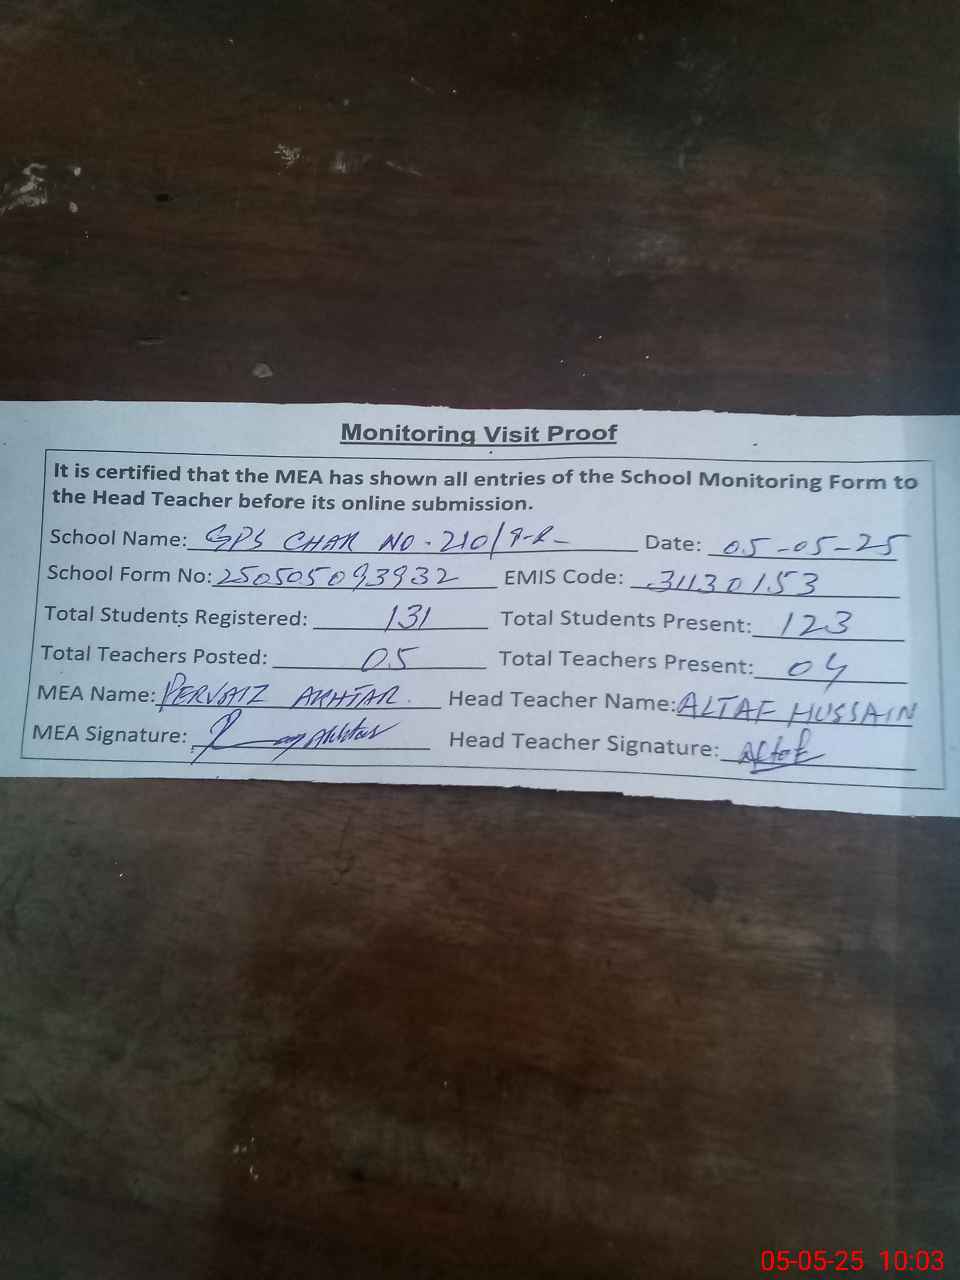 Monitoring Visit Proof
It is certified that the MEA has shown all entries of the School Monitoring Form to
the Head Teacher before its online submission.
School Name: GPS CHAK NO. 210/9-R Date: 05-05-25
School Form No: 250505093932 EMIS Code: 31130153
Total Students Registered: 131 Total Students Present: 123
Total Teachers Posted: 05 Total Teachers Present: 04
MEA Name: PERVAIZ AKHTAR. Head Teacher Name: ALTAF HUSSAIN
MEA Signature: Akhtar Head Teacher Signature: Altaf
05-05-25 10:03